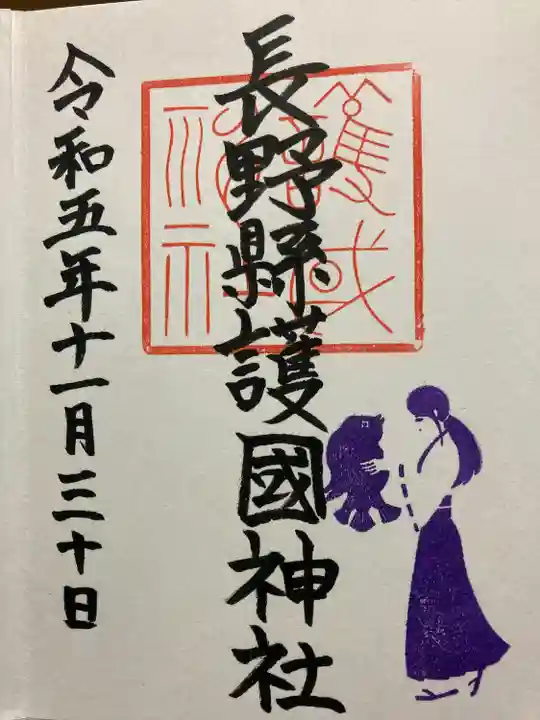 長野縣護國神社
令和五年十一月三十日